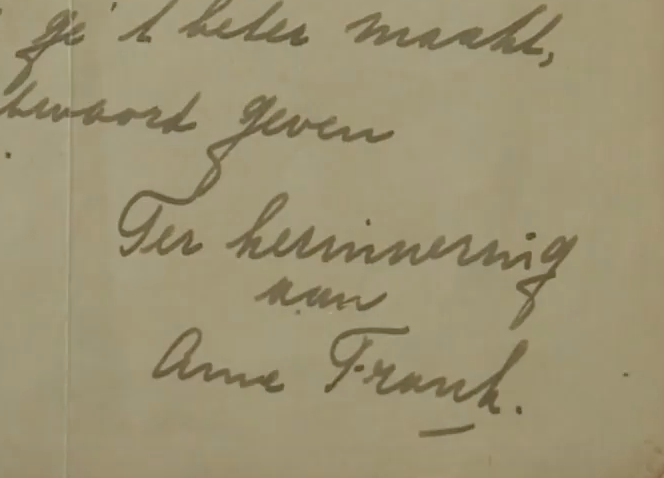 ge 't beter maakt,
geven
Ter herinnering
aan
Anne Frank.